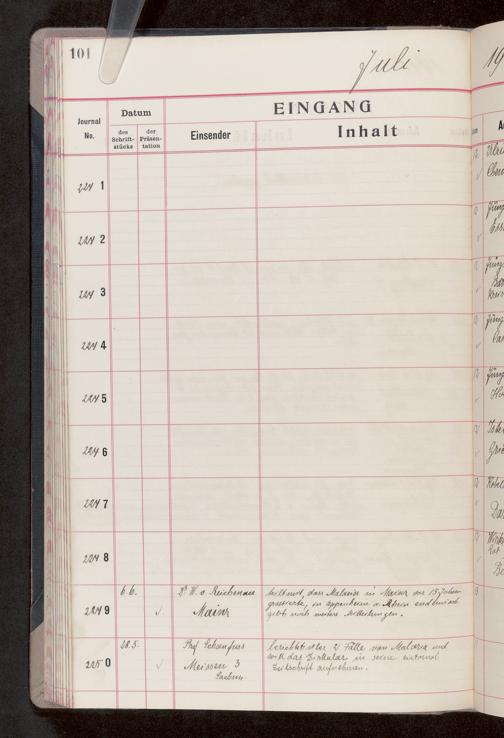 101
Juli
19
EINGANG
Journal No.
Datum
des Schrift-stücks
der Präsen-tation
Einsender
Inhalt
2241
2242
2243
2244
2245
2246
2247
2248
2249
6.6.
Dr. W. v. Reichenau
Mainz
teilt mit, dass Malaria in Mainz vor 15 Jahren
grassierte, in Oppenheim a. Rhein
gibt noch weitere Mitteilungen.
2250
28.5.
Prof. Schaufuss
Meissen 3
Sachsen.
berichtet über 2 Fälle von Malaria und
will das Zirkular in seine
Zeitschrift aufnehmen.